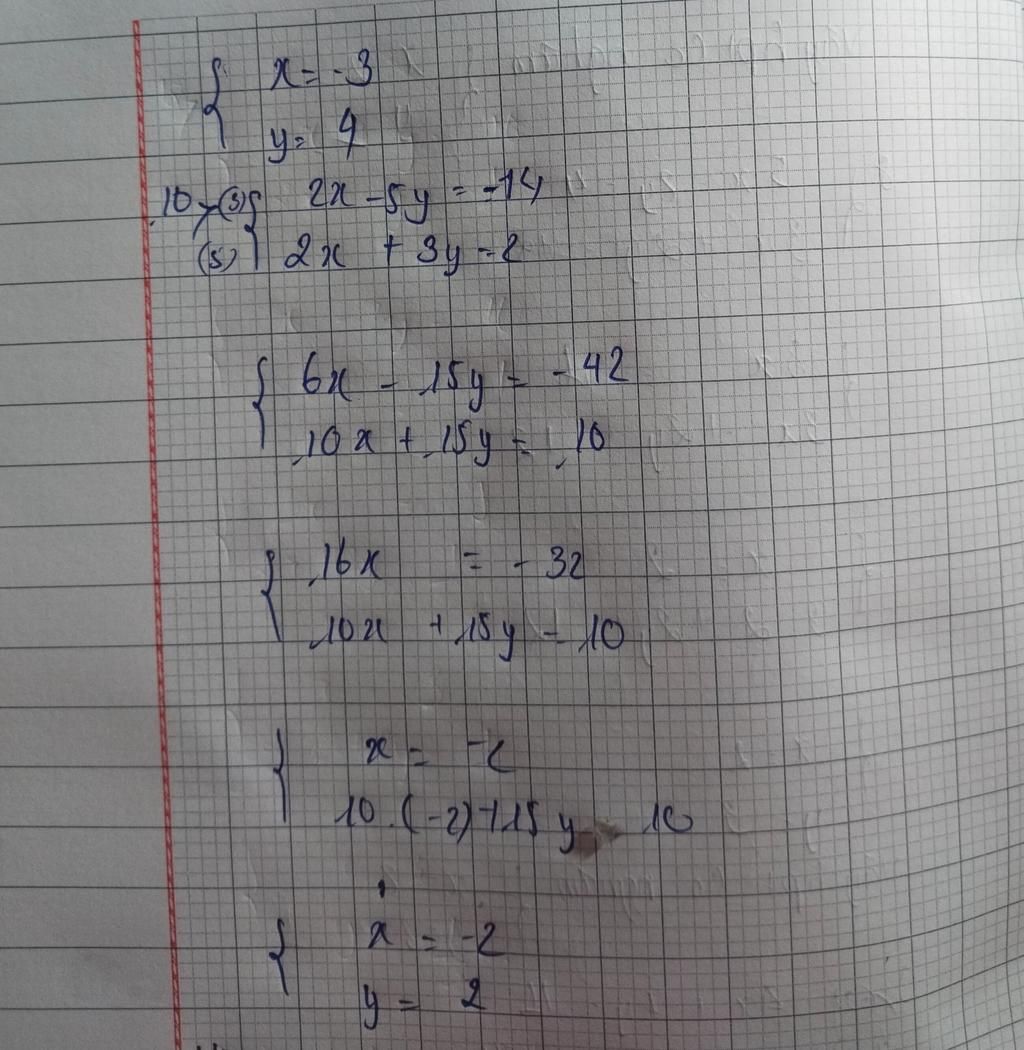 { x = -3
y = 4
10, (3) { 2x - 5y = -14
(5) 2x + 3y = 2
{ 6x - 15y = -42
10x + 15y = 10
{ 16x = -32
10x + 15y = 10
{ x = -2
10.(-2) + 15y = 10
{ x = -2
y = 2